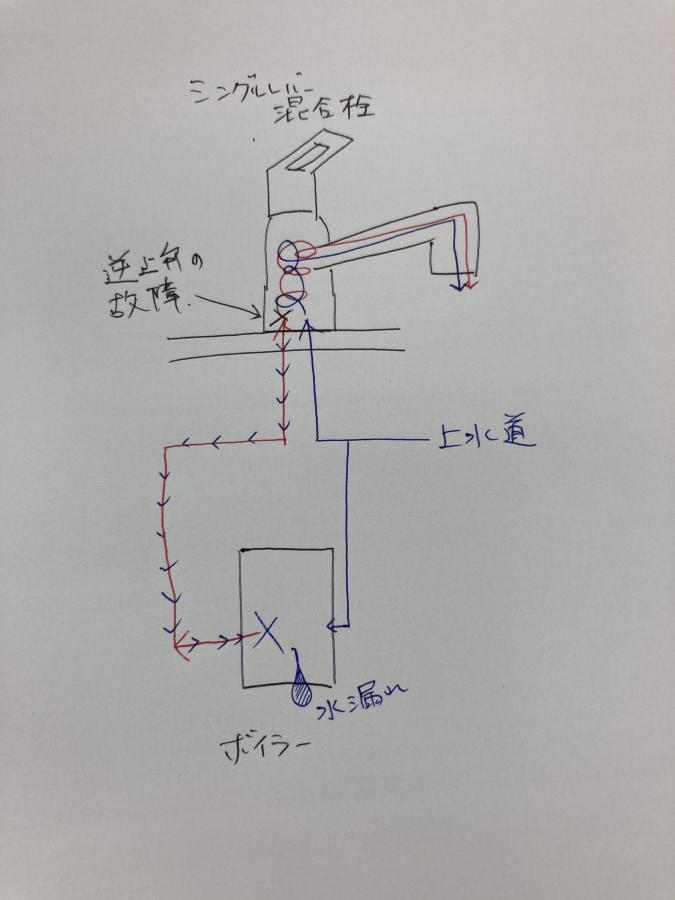 シングルレバー
混合栓
逆止弁の
故障
上水道
水漏れ
ボイラー